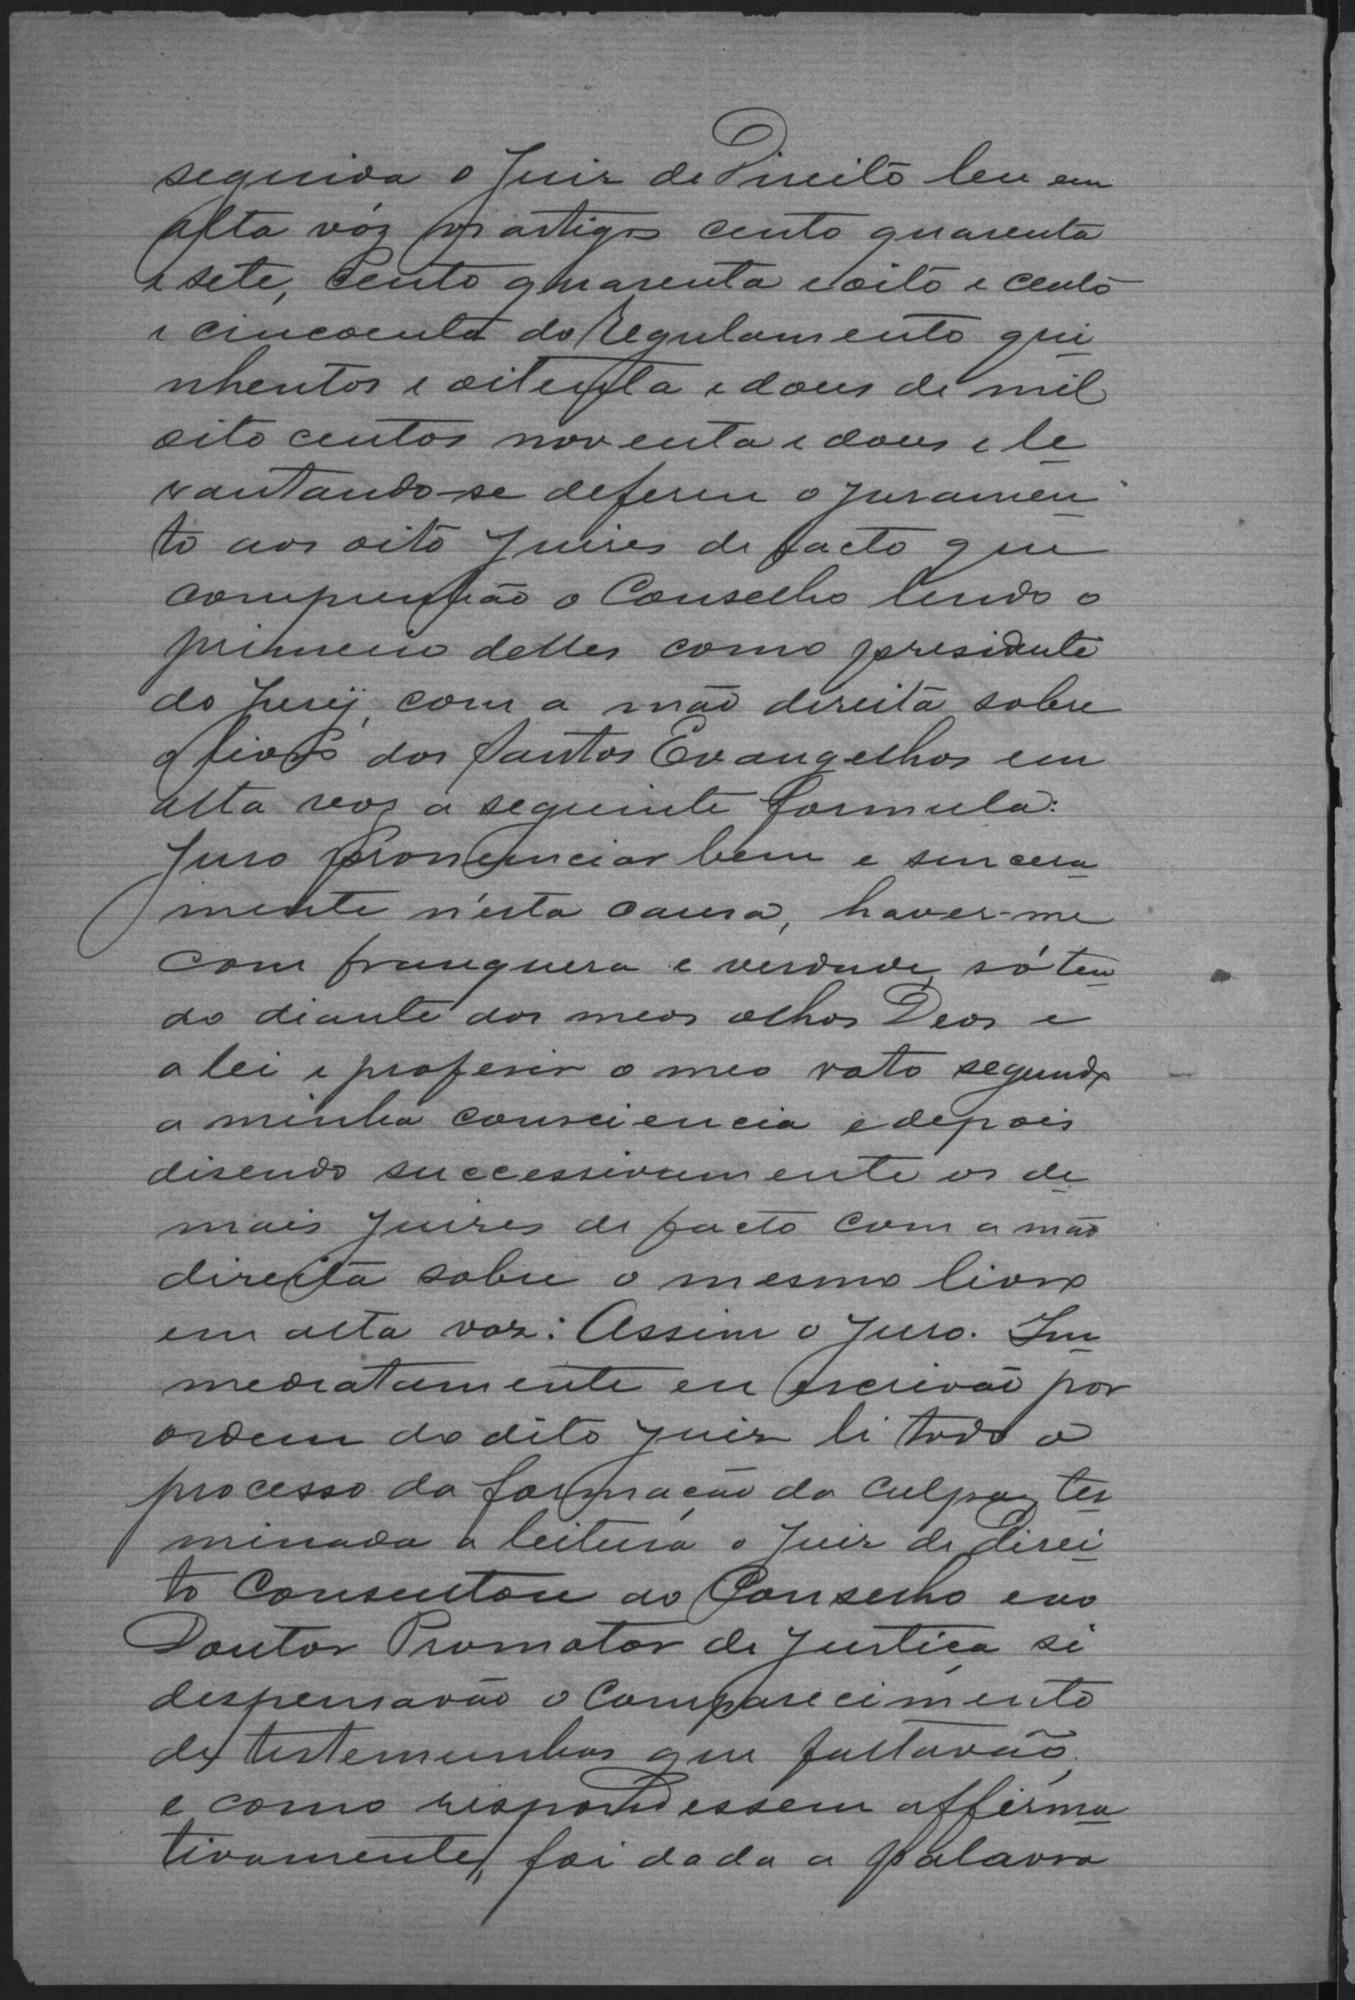 seguida o Juiz de Direito leu em
alta vóz os artigos cento quarenta
e sete, cento quarenta e oito e cento
e cincoenta do Regulamento qui
nhentos e oitenta e dous de mil
oito centos noventa e dous e le
vantando-se deferiu o juramen
to aos oito Juises de facto que
compunhão o Conselho lendo o
primeiro delles como presidente
do Jury, com a mão direita sobre
o livro dos Santos Evangelhos em
alta voz a seguinte formula:
Juro pronunciar bem e sincera
mente n'esta causa, haver-me
com franquesa e verdade, só ten
do diante dos meos olhos Deos e
a lei e proferir o meo voto segundo
a minha consciencia e depois
disendo successivamente os de
mais juizes de facto com a mão
direita sobre o mesmo livro
em alta voz: Assim o juro. Im
mediatamente eu escrivão por
ordem do dito juiz li todo o
processo da formação da culpa, ter
minada a leitura o Juiz de Direi
to consultou ao Conselho e ao
Doutor Promotor de Justiça si
despensavão o comparecimento
de testemunhas que faltavão,
e como respondessem affirma
tivamente, foi dada a palavra